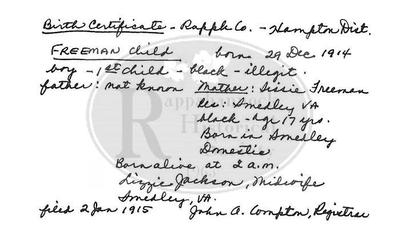 Birth Certificate - Rapph Co. - Hampton Dist.
FREEMAN child born 29 Dec 1914
boy - 1st child - black - illegit.
father: not known Mother: Sissie Freeman
Res: Smedley VA
black - age 17 yrs.
Born in Smedley
Domestic
Born alive at 2 a.m.
Lizzie Jackson, Midwife
Smedley, VA.
filed 2 Jan 1915 John A. Compton, Registrar